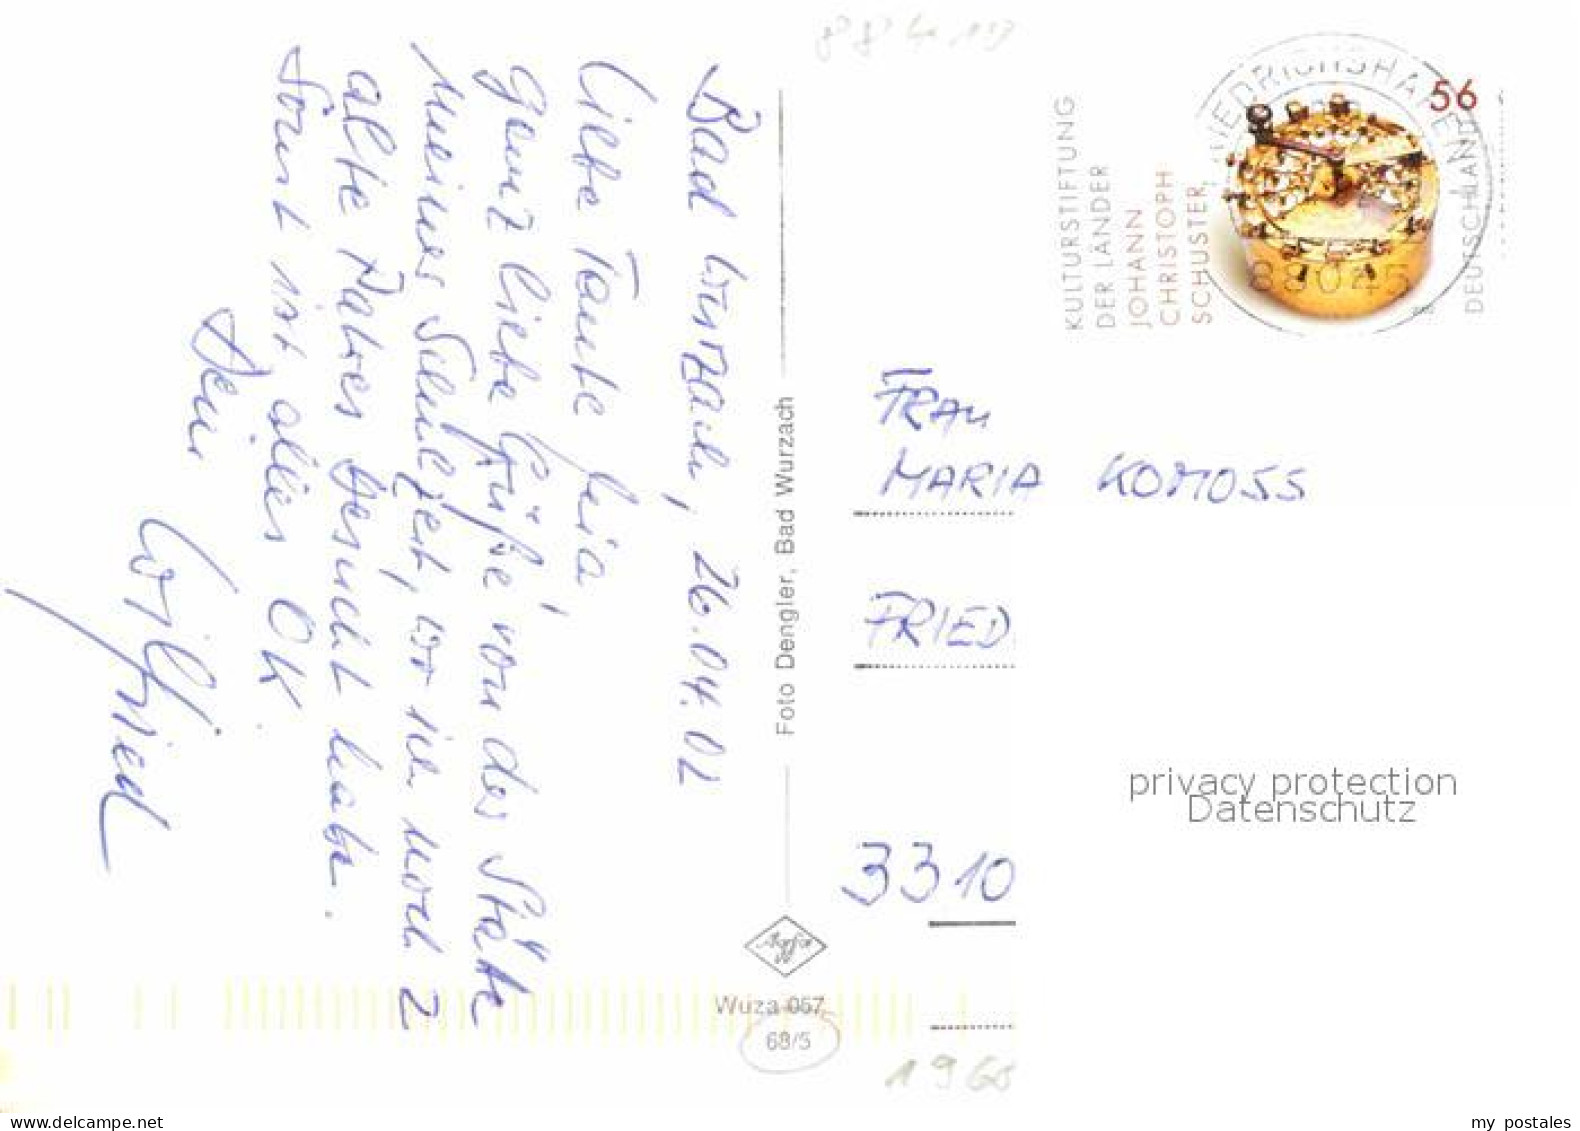 Bad Wurzach, 26.04.02
Liebe Tante Mia,
ganz liebe Grüße von der Stätte
meiner Schulzeit, wo ich noch 2
alte Patres besucht habe.
Sonst ist alles OK.
Dein
Wilfried
Foto Dengler, Bad Wurzach
Agfa
Wuza 057
68/5
1968
884
KULTURSTIFTUNG
DER LÄNDER
JOHANN
CHRISTOPH
SCHUSTER
56
DEUTSCHLAND
2002
FRIEDRICHSHAFEN
88045
FRAU
MARIA KOMOSS
FRIED
3310
privacy protection
Datenschutz
www.ansichtskartenversand.com
my postales